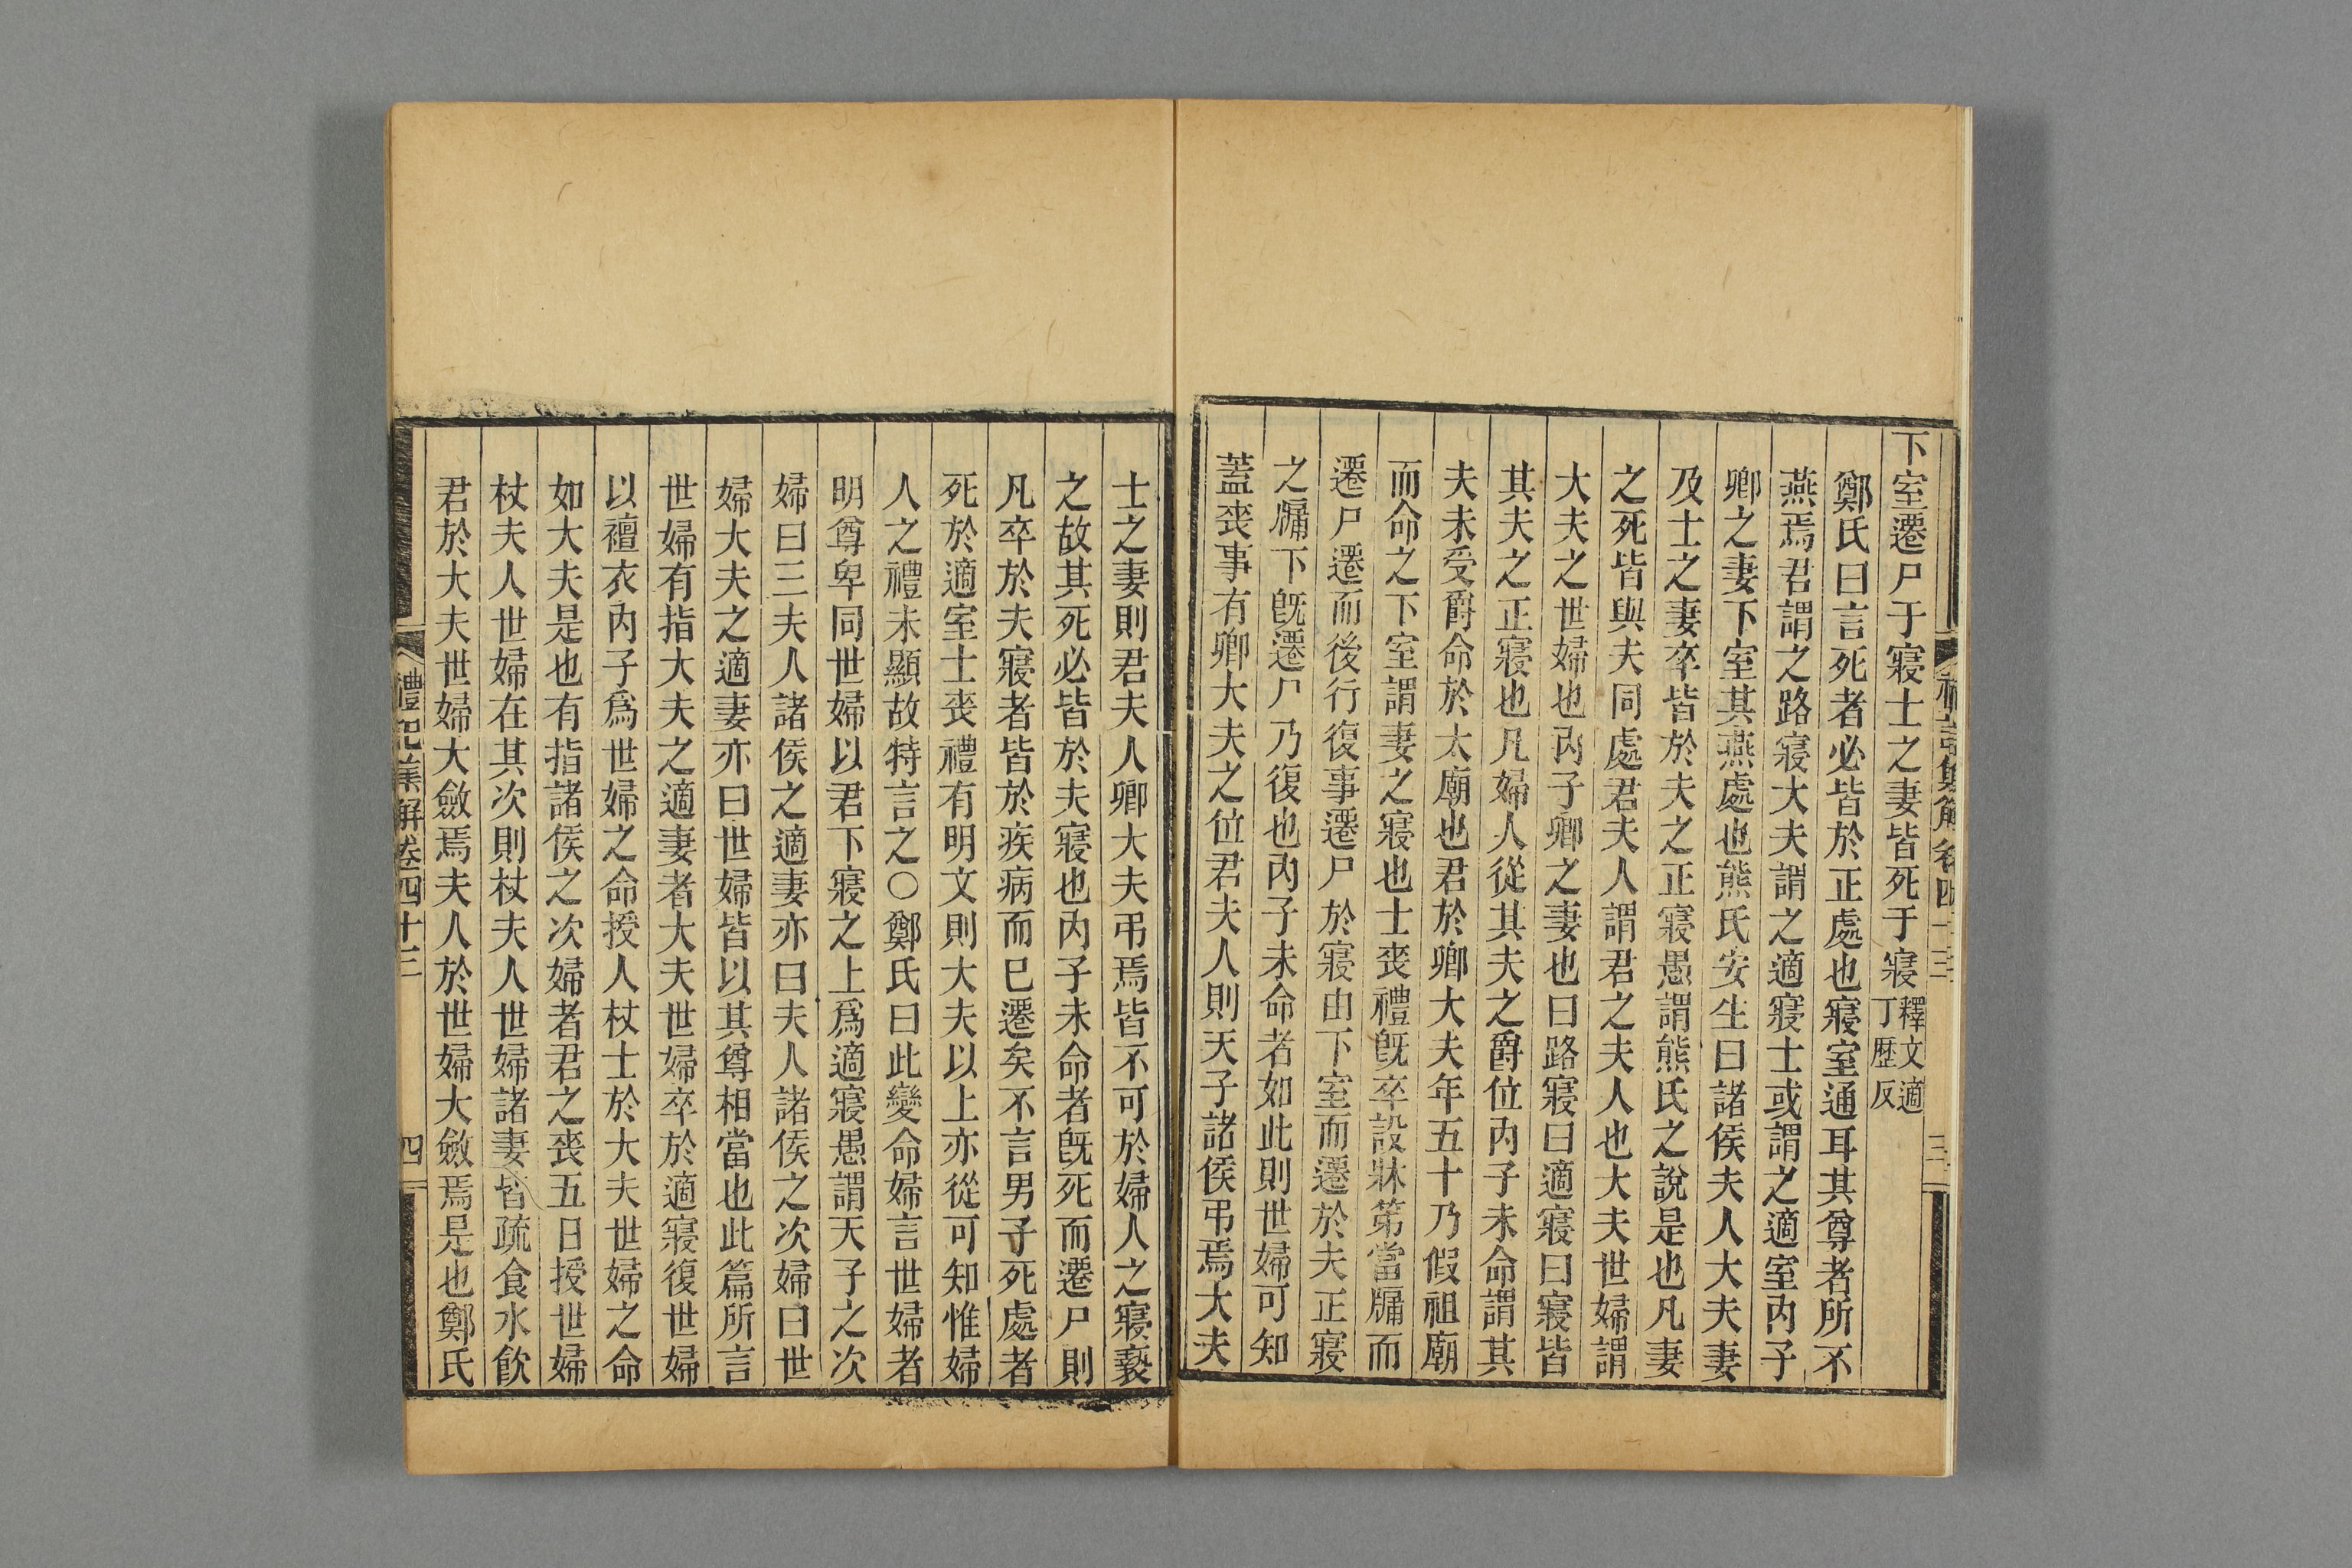 下室遷尸于寢士之妻皆死于寢釋文適丁歷反
鄭氏曰言死者必皆於正處也寢室通耳其尊者所不
燕焉君謂之路寢大夫謂之適寢士或謂之適室內子
卿之妻下室其燕處也熊氏安生曰諸侯夫人大夫妻
及士之妻卒皆於夫之正寢愚謂熊氏之說是也凡妻
之死皆與夫同處君夫人謂君之夫人也大夫世婦謂
大夫之世婦也內子卿之妻也曰路寢曰適寢曰寢皆
其夫之正寢也凡婦人從其夫之爵位內子未命謂其
夫未受爵命於太廟也君於卿大夫年五十乃假祖廟
而命之下室謂妻之寢也士喪禮旣卒設牀第當牖而
遷尸遷而後行復事遷尸於寢由下室而遷於夫正寢
之牖下旣遷尸乃復也內子未命者如此則世婦可知
蓋喪事有卿大夫之位君夫人則天子諸侯弔焉大夫
士之妻則君夫人卿大夫弔焉皆不可於婦人之寢褻
之故其死必皆於夫寢也內子未命者旣死而遷尸則
凡卒於夫寢者皆於疾病而已遷矣不言男子死處者
死於適室士喪禮有明文則大夫以上亦從可知惟婦
人之禮未顯故特言之○鄭氏曰此變命婦言世婦者
明尊卑同世婦以君下寢之上爲適寢愚謂天子之次
婦曰三夫人諸侯之適妻亦曰夫人諸侯之次婦曰世
婦大夫之適妻亦曰世婦皆以其尊相當也此篇所言
世婦有指大夫之適妻者大夫世婦卒於適寢復世婦
以襢衣內子爲世婦之命授人杖士於大夫世婦之命
如大夫是也有指諸侯之次婦者君之喪五日授世婦
杖夫人世婦在其次則杖夫人世婦諸妻皆疏食水飮
君於大夫世婦大斂焉夫人於世婦大斂焉是也鄭氏
禮記集解卷四十三 四